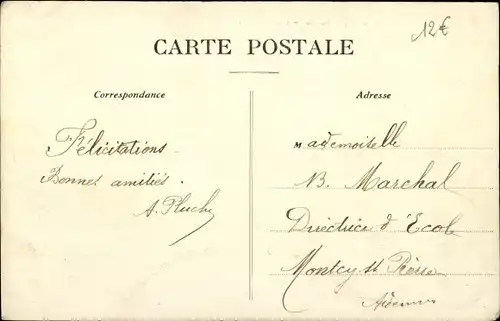 12€
CARTE POSTALE
Correspondance
Adresse
Félicitations
Bonnes amitiés.
A. Pluche
Mademoiselle
B. Marchal
Directrice d'École
Montcy-St Pierre
Ardennes